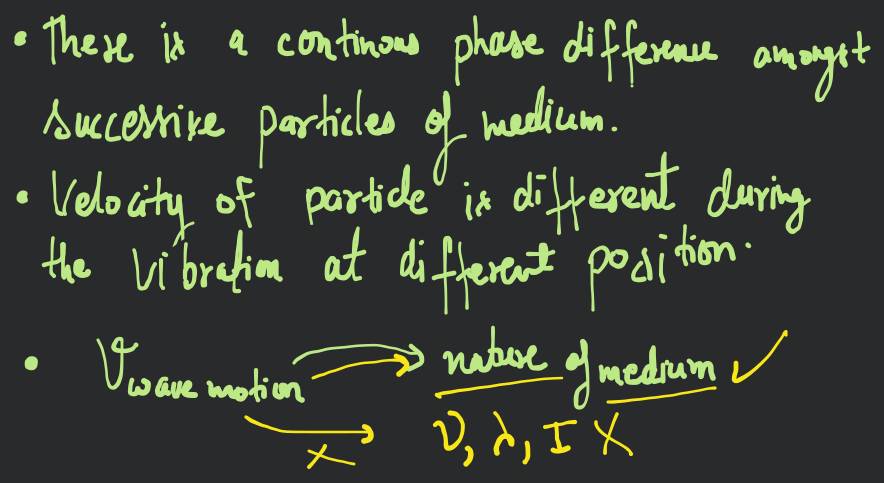 • There is a continous phase difference amongst
successive particles of medium.
• Velocity of particle is different during
the vibration at different position.
• V wave motion → nature of medium ✓
→ ν, λ, I X
X